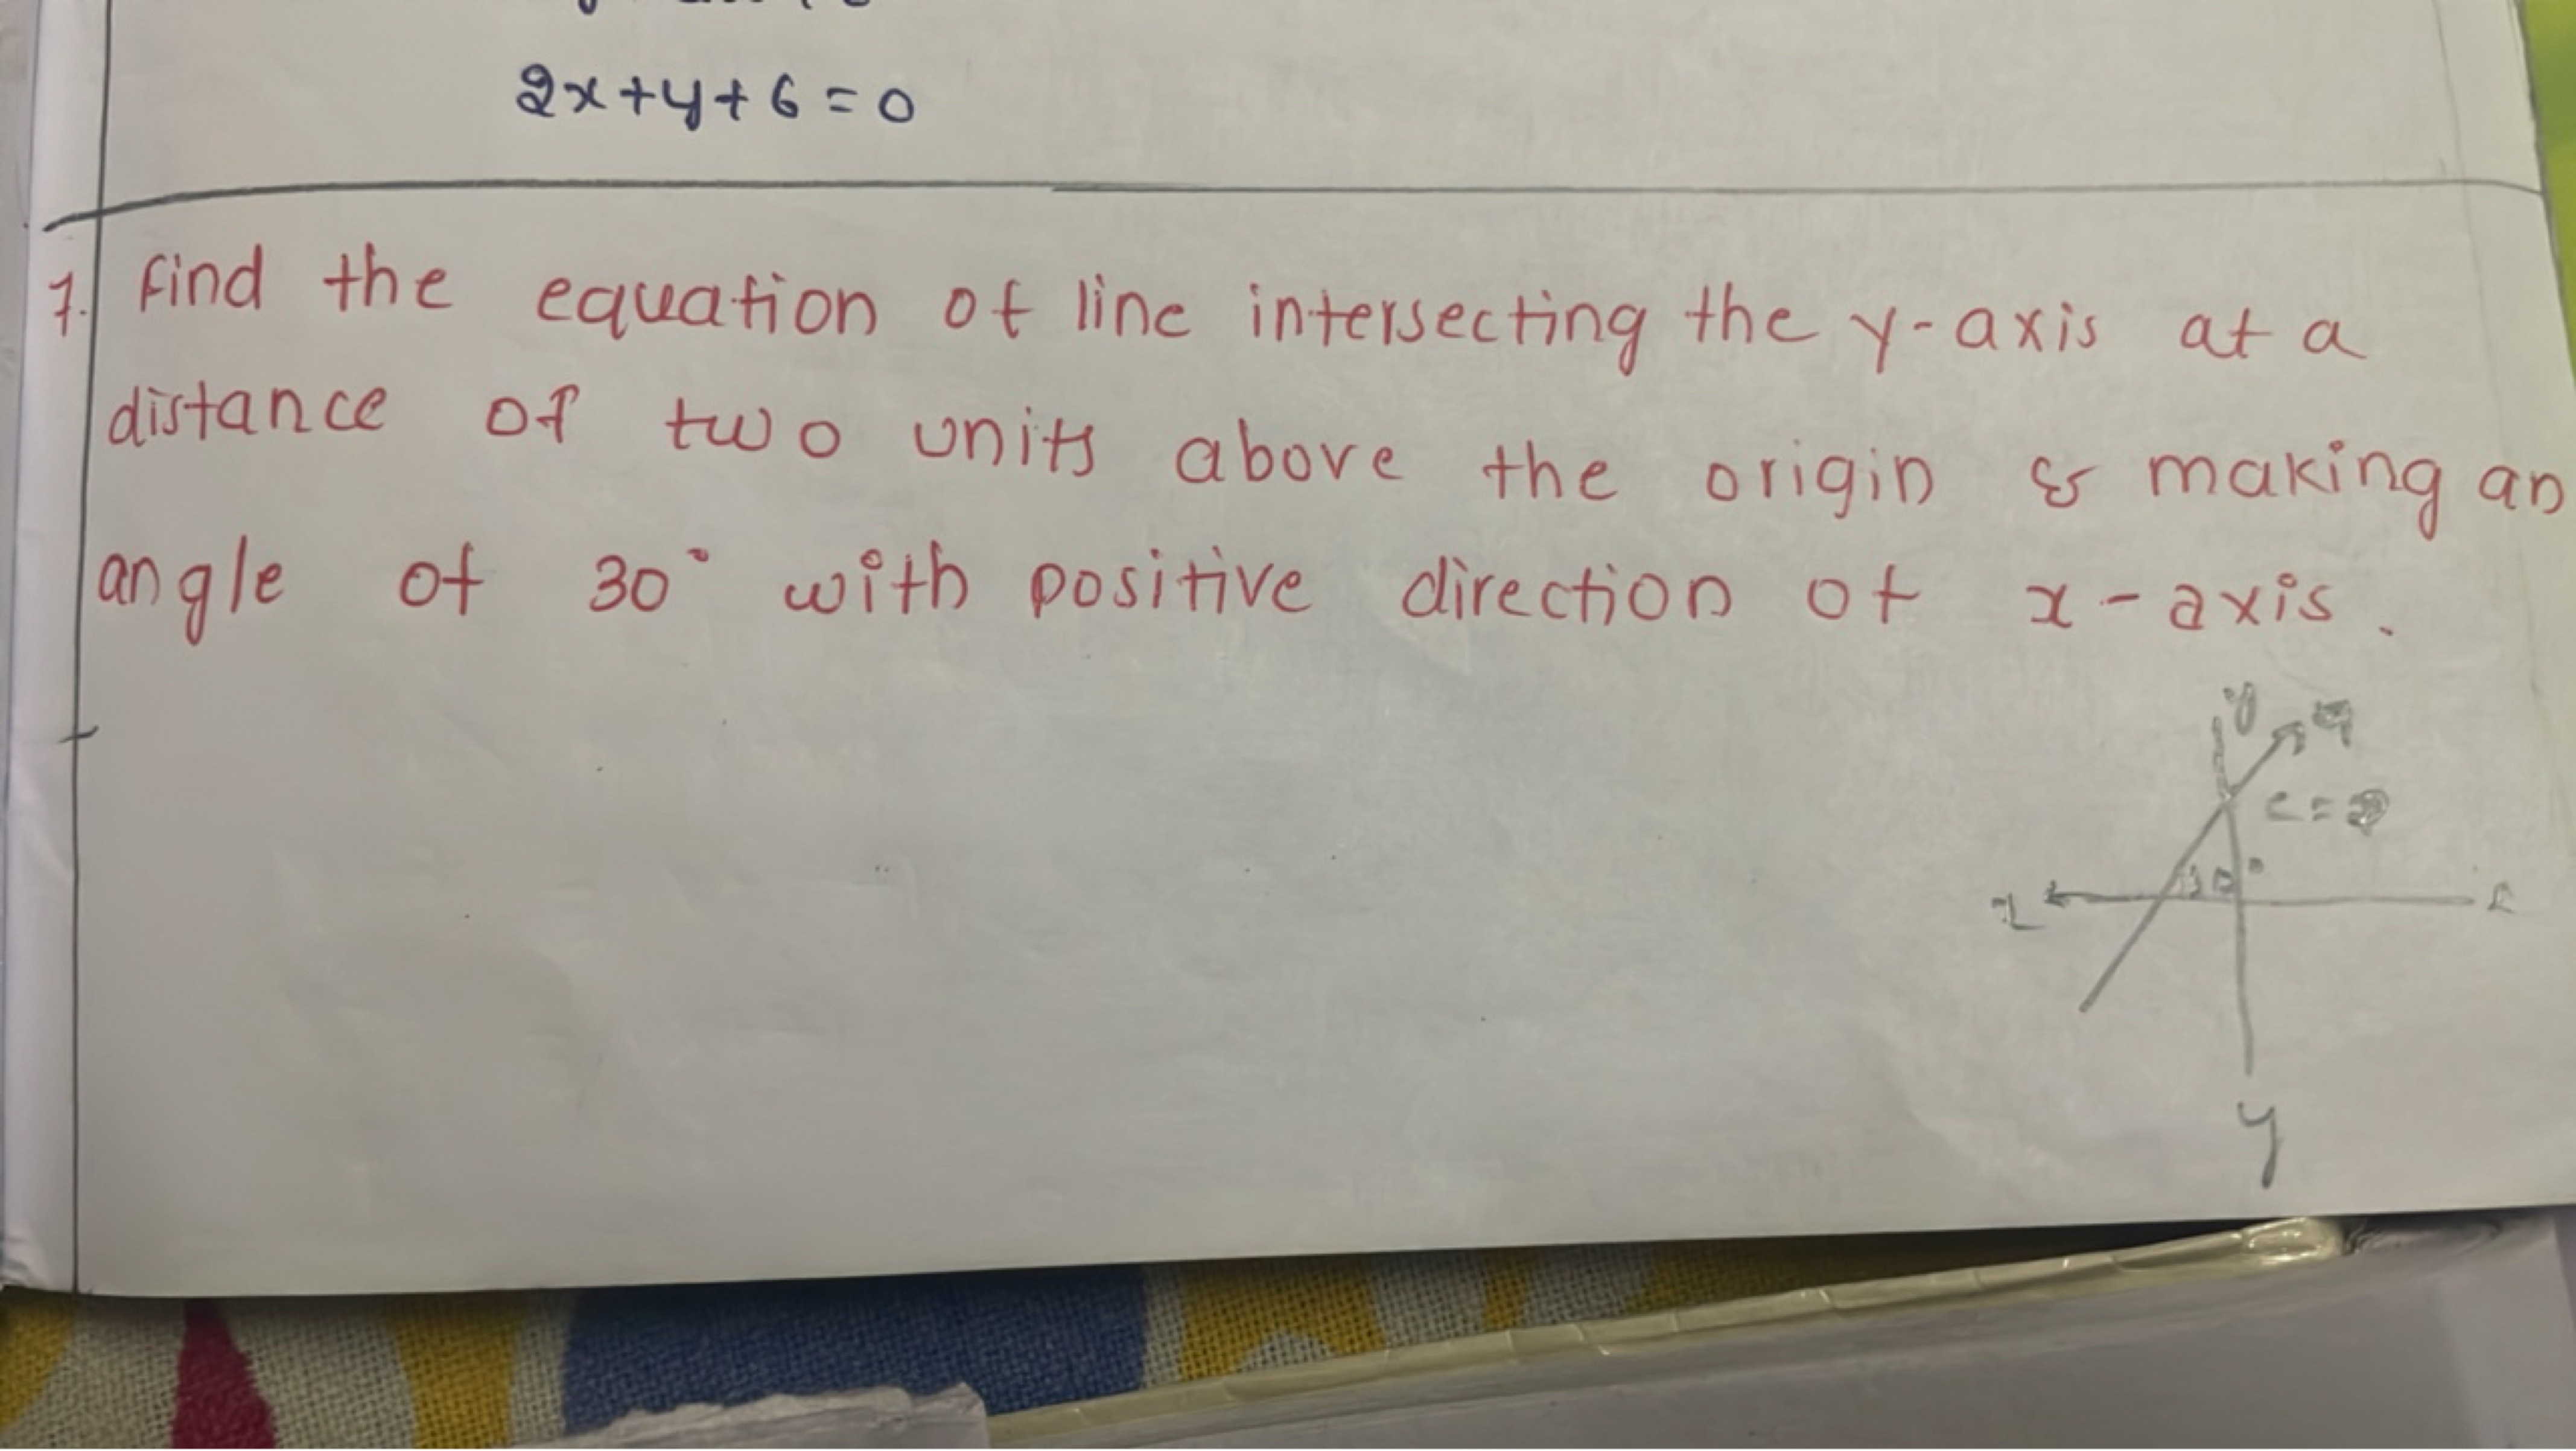 2x+y+6=0
7. Find the equation of line intersecting the y-axis at a
distance of two units above the origin & making an
angle of 30° with positive direction of x-axis.
y
c=2
30°
x
y